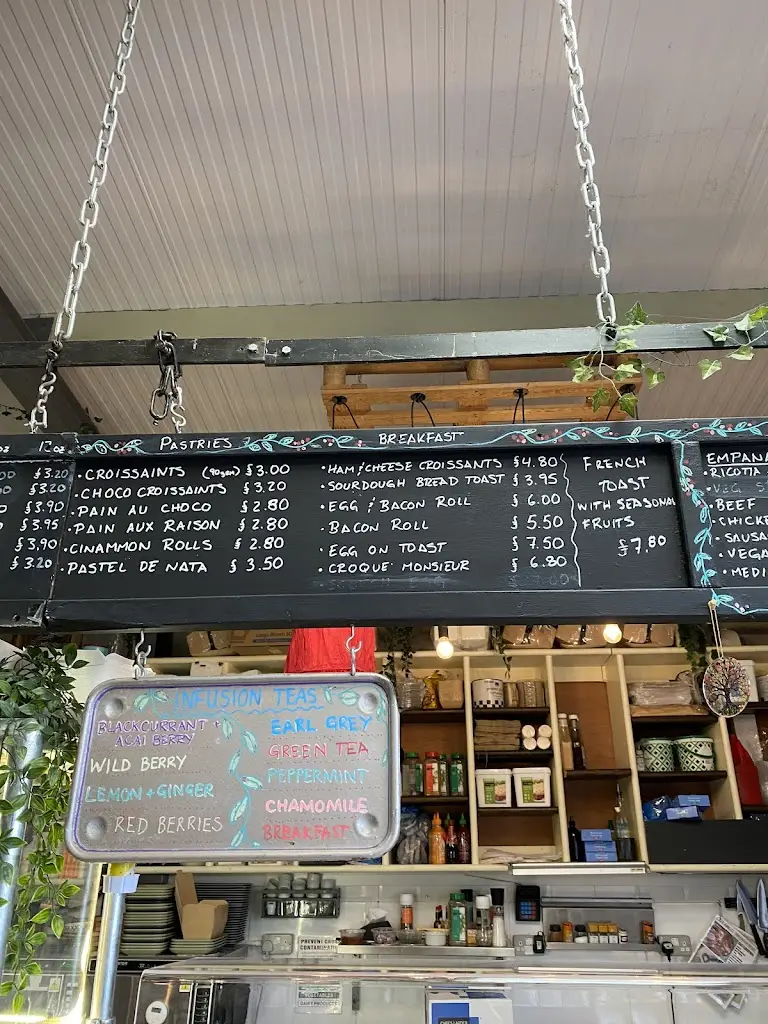 12oz
£3.20
£3.20
£3.90
£3.95
£3.90
£3.20
PASTRIES
· CROISSAINTS (90gm) £3.00
· CHOCO CROISSAINTS £3.20
· PAIN AU CHOCO £2.80
· PAIN AUX RAISON £2.80
· CINAMMON ROLLS £2.80
· PASTEL DE NATA £3.50
BREAKFAST
· HAM & CHEESE CROISSANTS £4.80
· SOURDOUGH BREAD TOAST £3.95
· EGG & BACON ROLL £6.00
· BACON ROLL £5.50
· EGG ON TOAST £7.50
· CROQUE MONSIEUR £6.80
FRENCH
TOAST
WITH SEASONAL
FRUITS
£7.80
EMPANA
· RICOTA
· BEEF
· CHICKE
· SAUSA
· VEGA
· MEDI
INFUSION TEAS
BLACKCURRANT +
ACAI BERRY
WILD BERRY
LEMON + GINGER
RED BERRIES
EARL GREY
GREEN TEA
PEPPERMINT
CHAMOMILE
BREAKFAST
PREVENT CROSS
CONTAMINATION